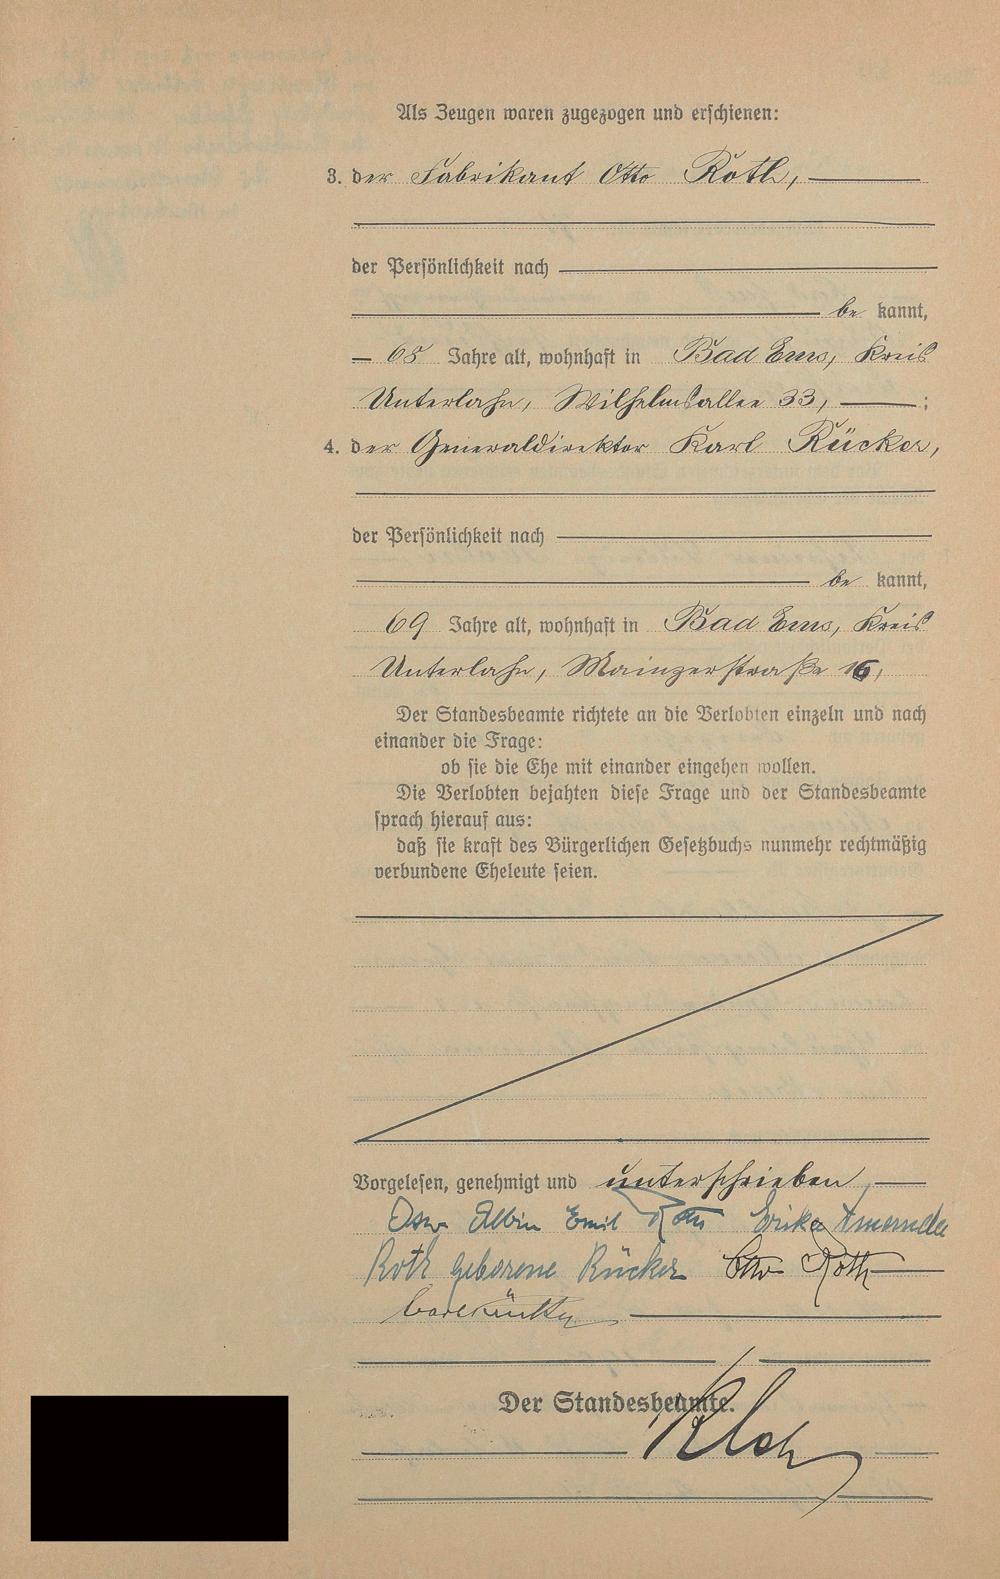 Als Zeugen waren zugezogen und erschienen:
3. der Fabrikant Otto Roth,
der Persönlichkeit nach
be kannt,
65 Jahre alt, wohnhaft in Bad Ems, Kreis
Unterlahn, Wilhelmsallee 33, ;
4. der Generaldirektor Karl Rücker,
der Persönlichkeit nach
be kannt,
69 Jahre alt, wohnhaft in Bad Ems, Kreis
Unterlahn, Mainzerstraße 16,
Der Standesbeamte richtete an die Verlobten einzeln und nach
einander die Frage:
ob sie die Ehe mit einander eingehen wollen.
Die Verlobten bejahten diese Frage und der Standesbeamte
sprach hierauf aus:
daß sie kraft des Bürgerlichen Gesetzbuchs nunmehr rechtmäßig
verbundene Eheleute seien.
Vorgelesen, genehmigt und unterschrieben,
Albin Emil Roth Erika
Roth geborene Rücker Otto Roth
Der Standesbeamte.